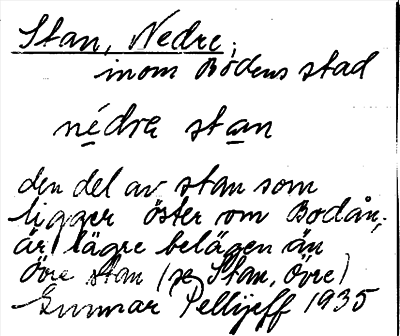 Stan, Nedre;
inom Bodens stad
nédra stan
den del av stan som
ligger öster om Bodån;
är lägre belägen än
Övre stan (se Stan, Övre)
Gunnar Pellijeff 1935